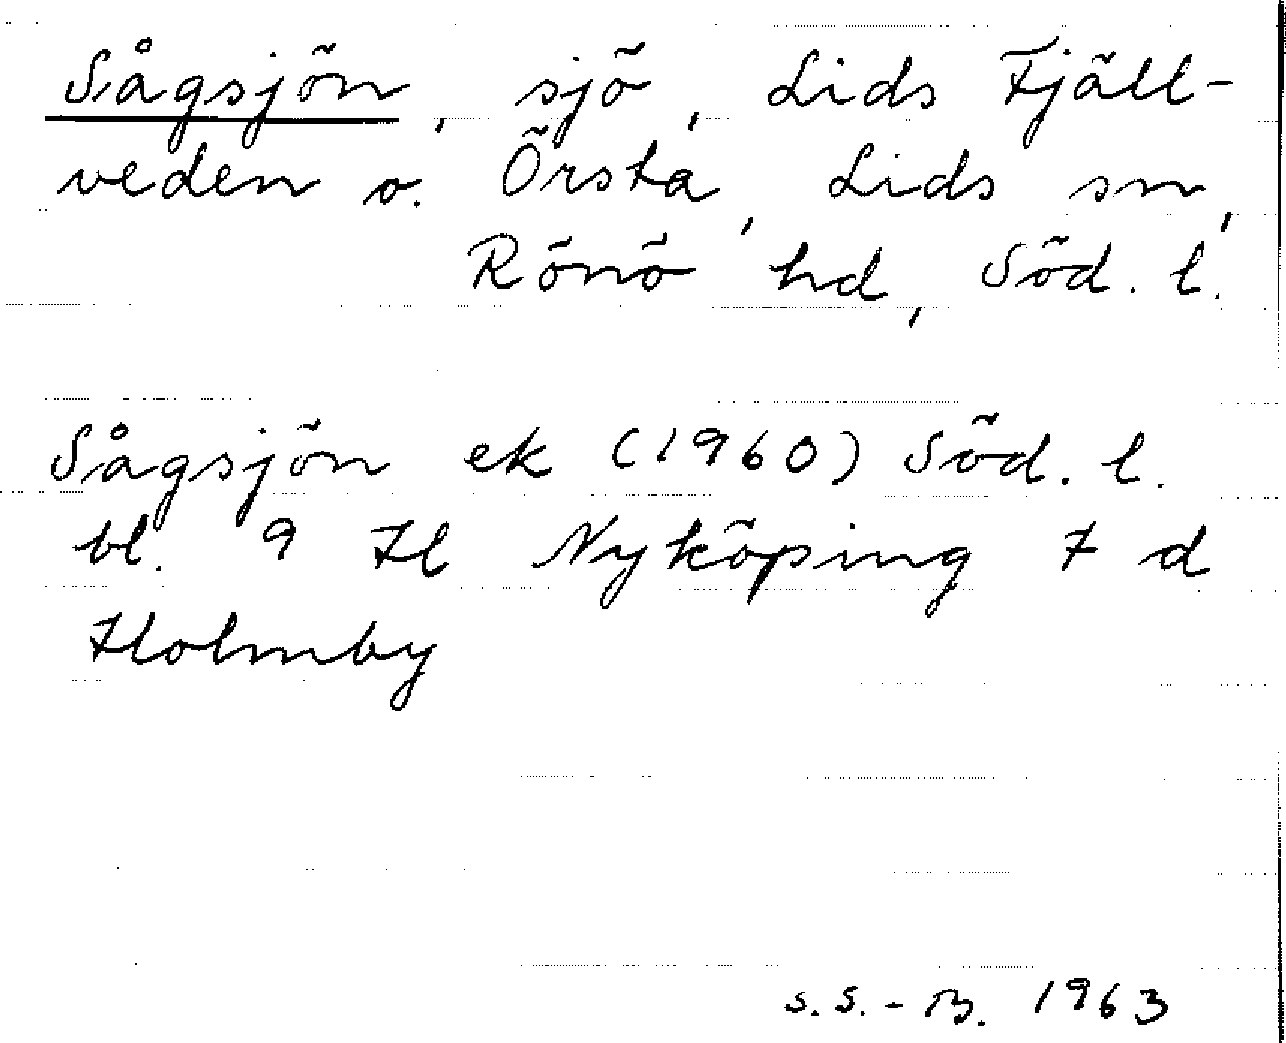 Sågsjön, sjö, Lids Fjäll-
veden o. Örsta, Lids sn,
Rönö hd, Söd. l.
Sågsjön ek (1960) Söd. l.
bl. 9 H Nyköping 7 d
Holmby
S.S.-B. 1963